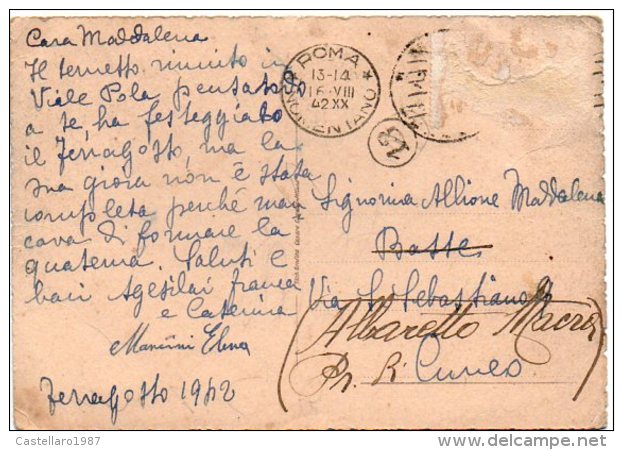 Cara Maddalena
Il terzetto riunito in
Viale Pola pensatoso
a te, ha festeggiato
il ferragosto, ma la
sua gioia non è stata
completa perché man
cava di formare la
quaterna. Saluti e
baci Agesilai franca
e Caterina
Mancini Elena
ferragosto 1942
ROMA
13-14
16·VIII
42.XX
NOMENTANO
Signorina Allione Maddalena
Busse
Via S. Sebastiano
(Albaretto Macra
Pr. di Cuneo)
Castellaro1987
delcampe.net